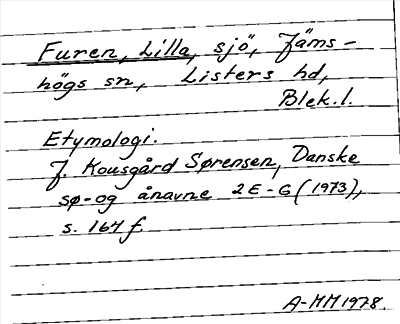 Furen, Lilla, sjö, Jäms-
högs sn, Listers hd,
Blek.l.
Etymologi.
J. Kousgård Sørensen, Danske
sø- og ånavne 2 E-G (1973),
s. 164 f.
A-MM 1978.